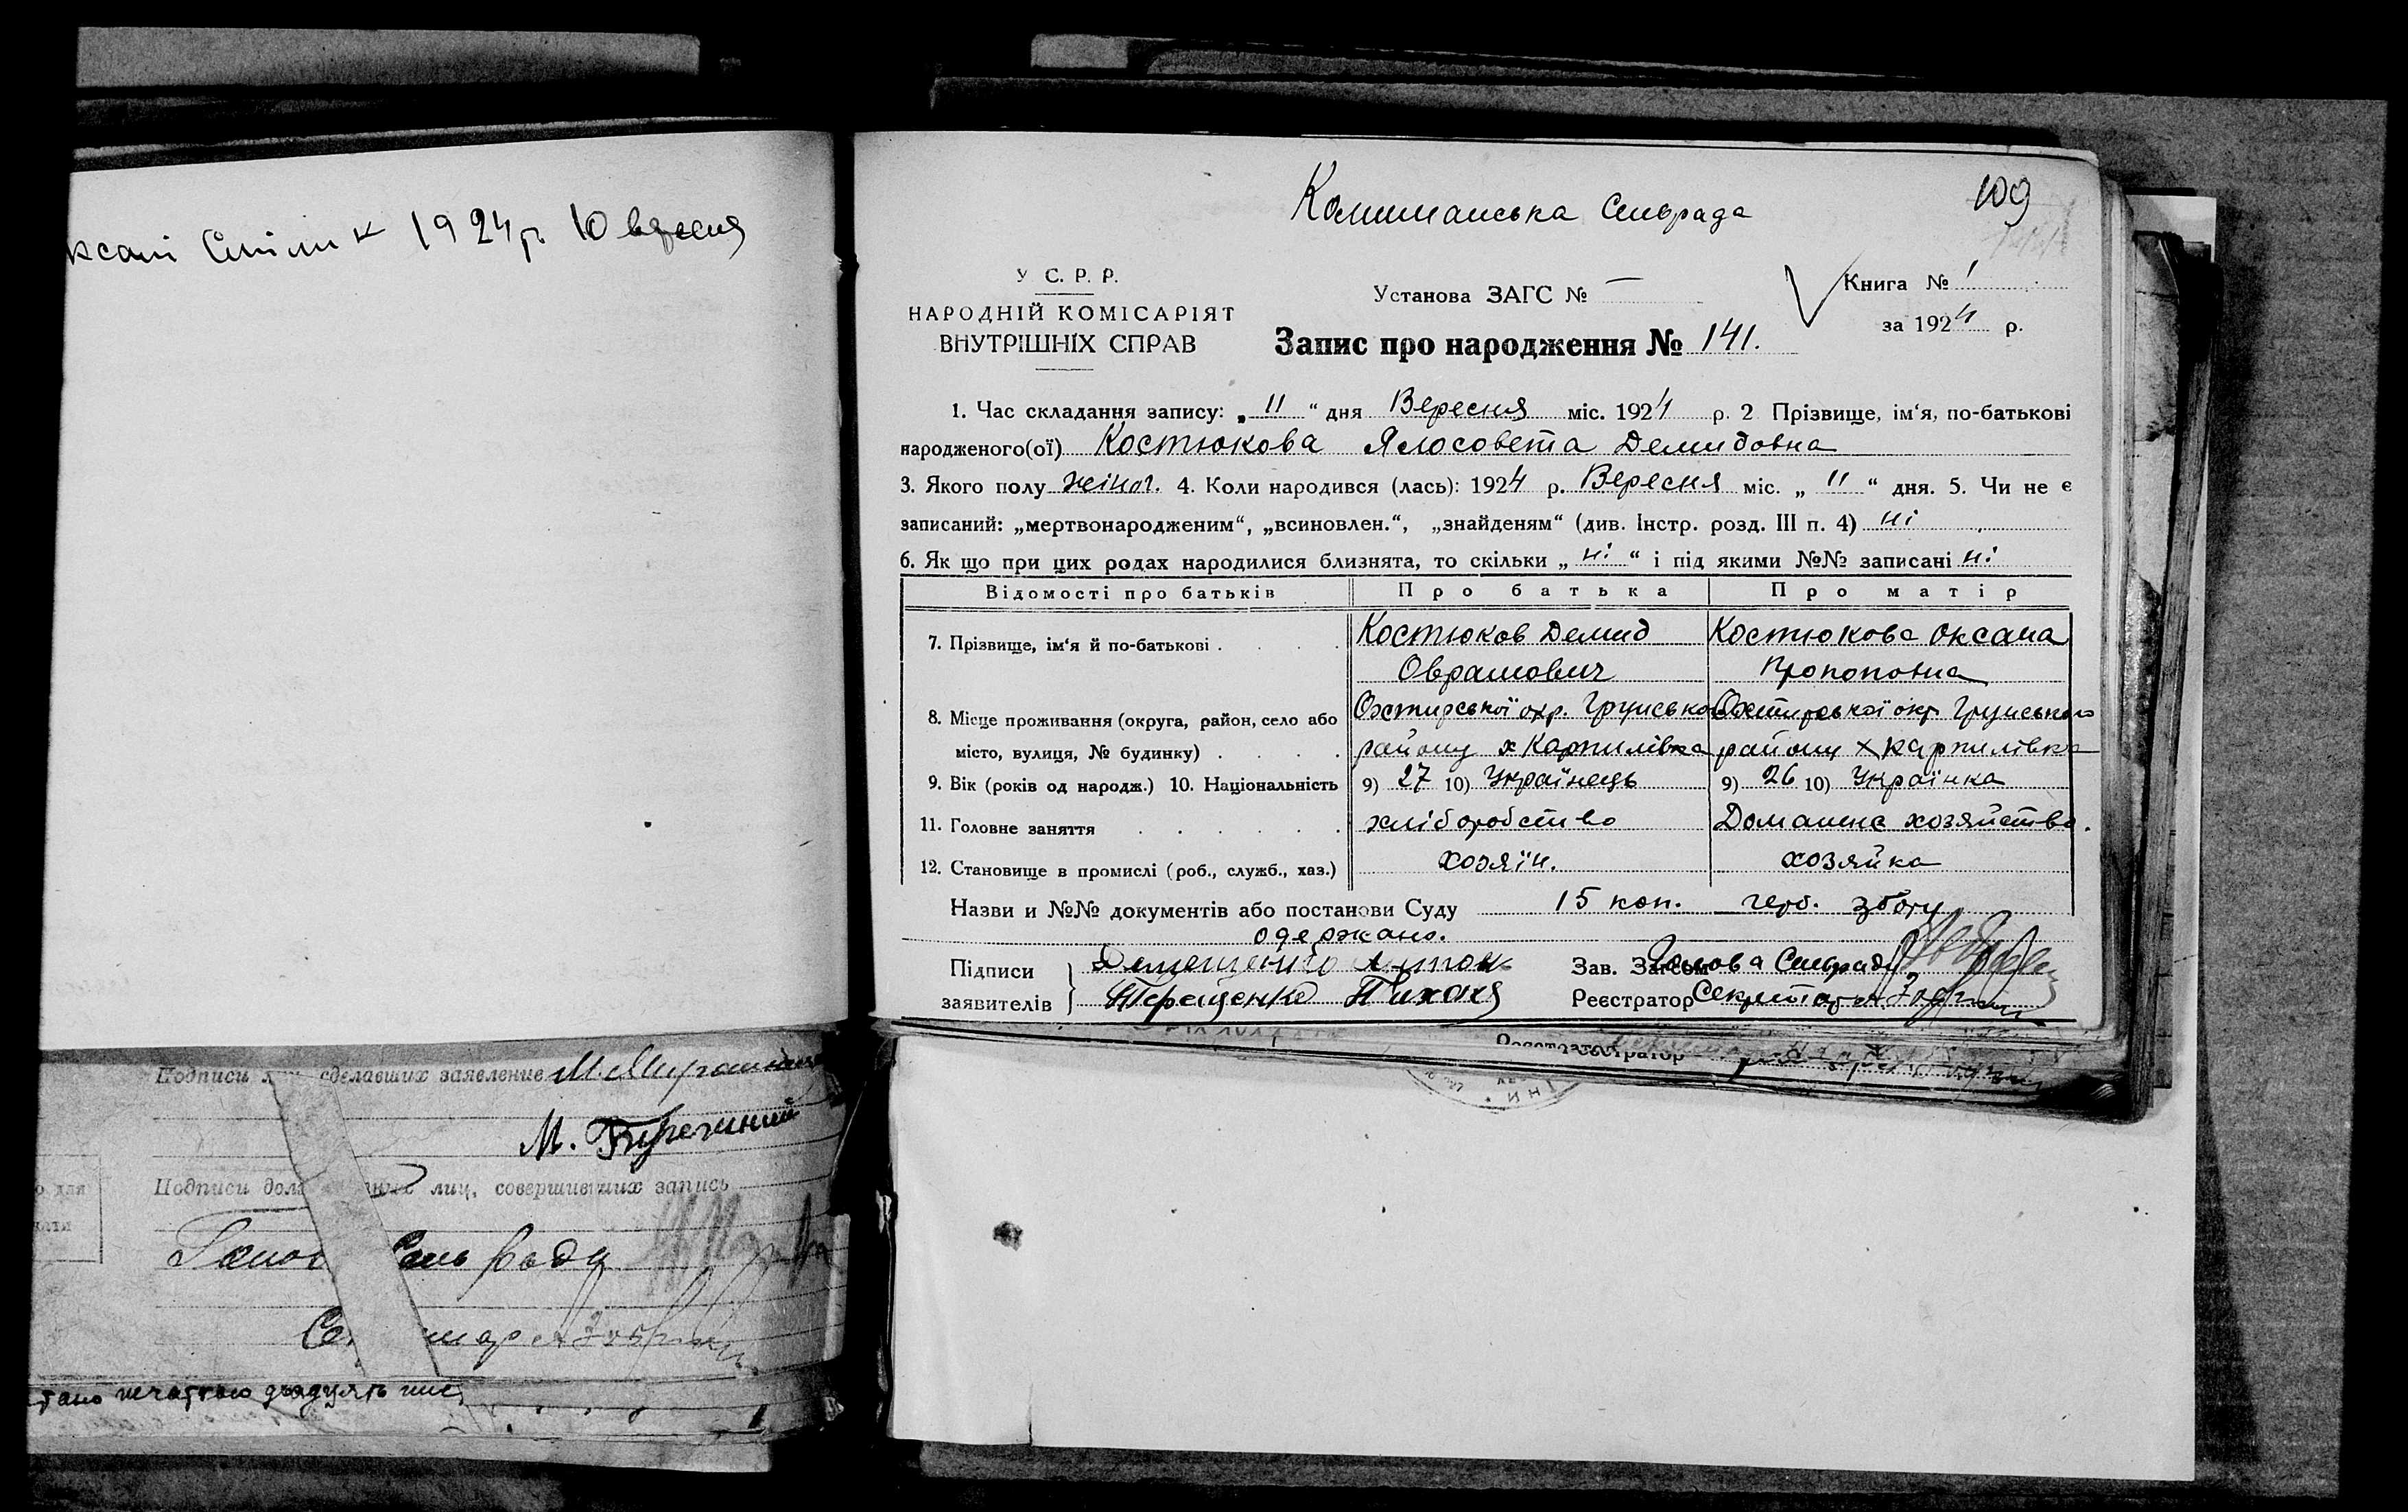 1924 р. 10 вересня
Комишанська Сильрада
109
У С. Р. Р.
НАРОДНІЙ КОМІСАРІЯТ
ВНУТРІШНІХ СПРАВ
Установа ЗАГС № —
Книга № 1
за 1924 р.
Запис про народження № 141.
1. Час складання запису: „ 11 “ дня Вересня міс. 1924 р. 2 Прізвище, ім‘я, по-батькові
народженого(ої) Костюкова Ялосовета Демидовна
3. Якого полу жіноч. 4. Коли народився (лась): 1924 р. Вересня міс. „ 11 “ дня. 5. Чи не є
записаний: „мертвонародженим“, „всиновлен.“, „знайденям“ (див. Інстр. розд. III п. 4) ні
6. Як що при цих родах народилися близнята, то скільки „ ні “ і під якими №№ записані ні
Відомості про батьків Про батька Про матір
7. Прізвище, ім‘я й по-батькові . . . . Костюков Демид Костюкова Оксана
Оврамович Прокоповна
8. Місце проживання (округа, район, село або Охтирської окр. Грунсько Охтирської окр Грунського
місто, вулиця, № будинку) . . . . району х Карпилівка району х Карпилівка
9. Вік (років од народж.) 10. Національність 9) 27 10) Українець 9) 26 10) Українка
11. Головне заняття . . . . . . хліборобство Домашнє хозяйство.
12. Становище в промислі (роб., служб., хаз.) хозяїн. хозяйка
Назви и №№ документів або постанови Суду 15 коп. герб. збору
одержано.
Підписи Антон Зав. Загсом Голова Сильради
заявителів Терещенко Реєстратор Секретар
Реєстратор
Подписи сделавших заявление
М.
Подписи лиц, совершивших запись
Сель ради
печаткою